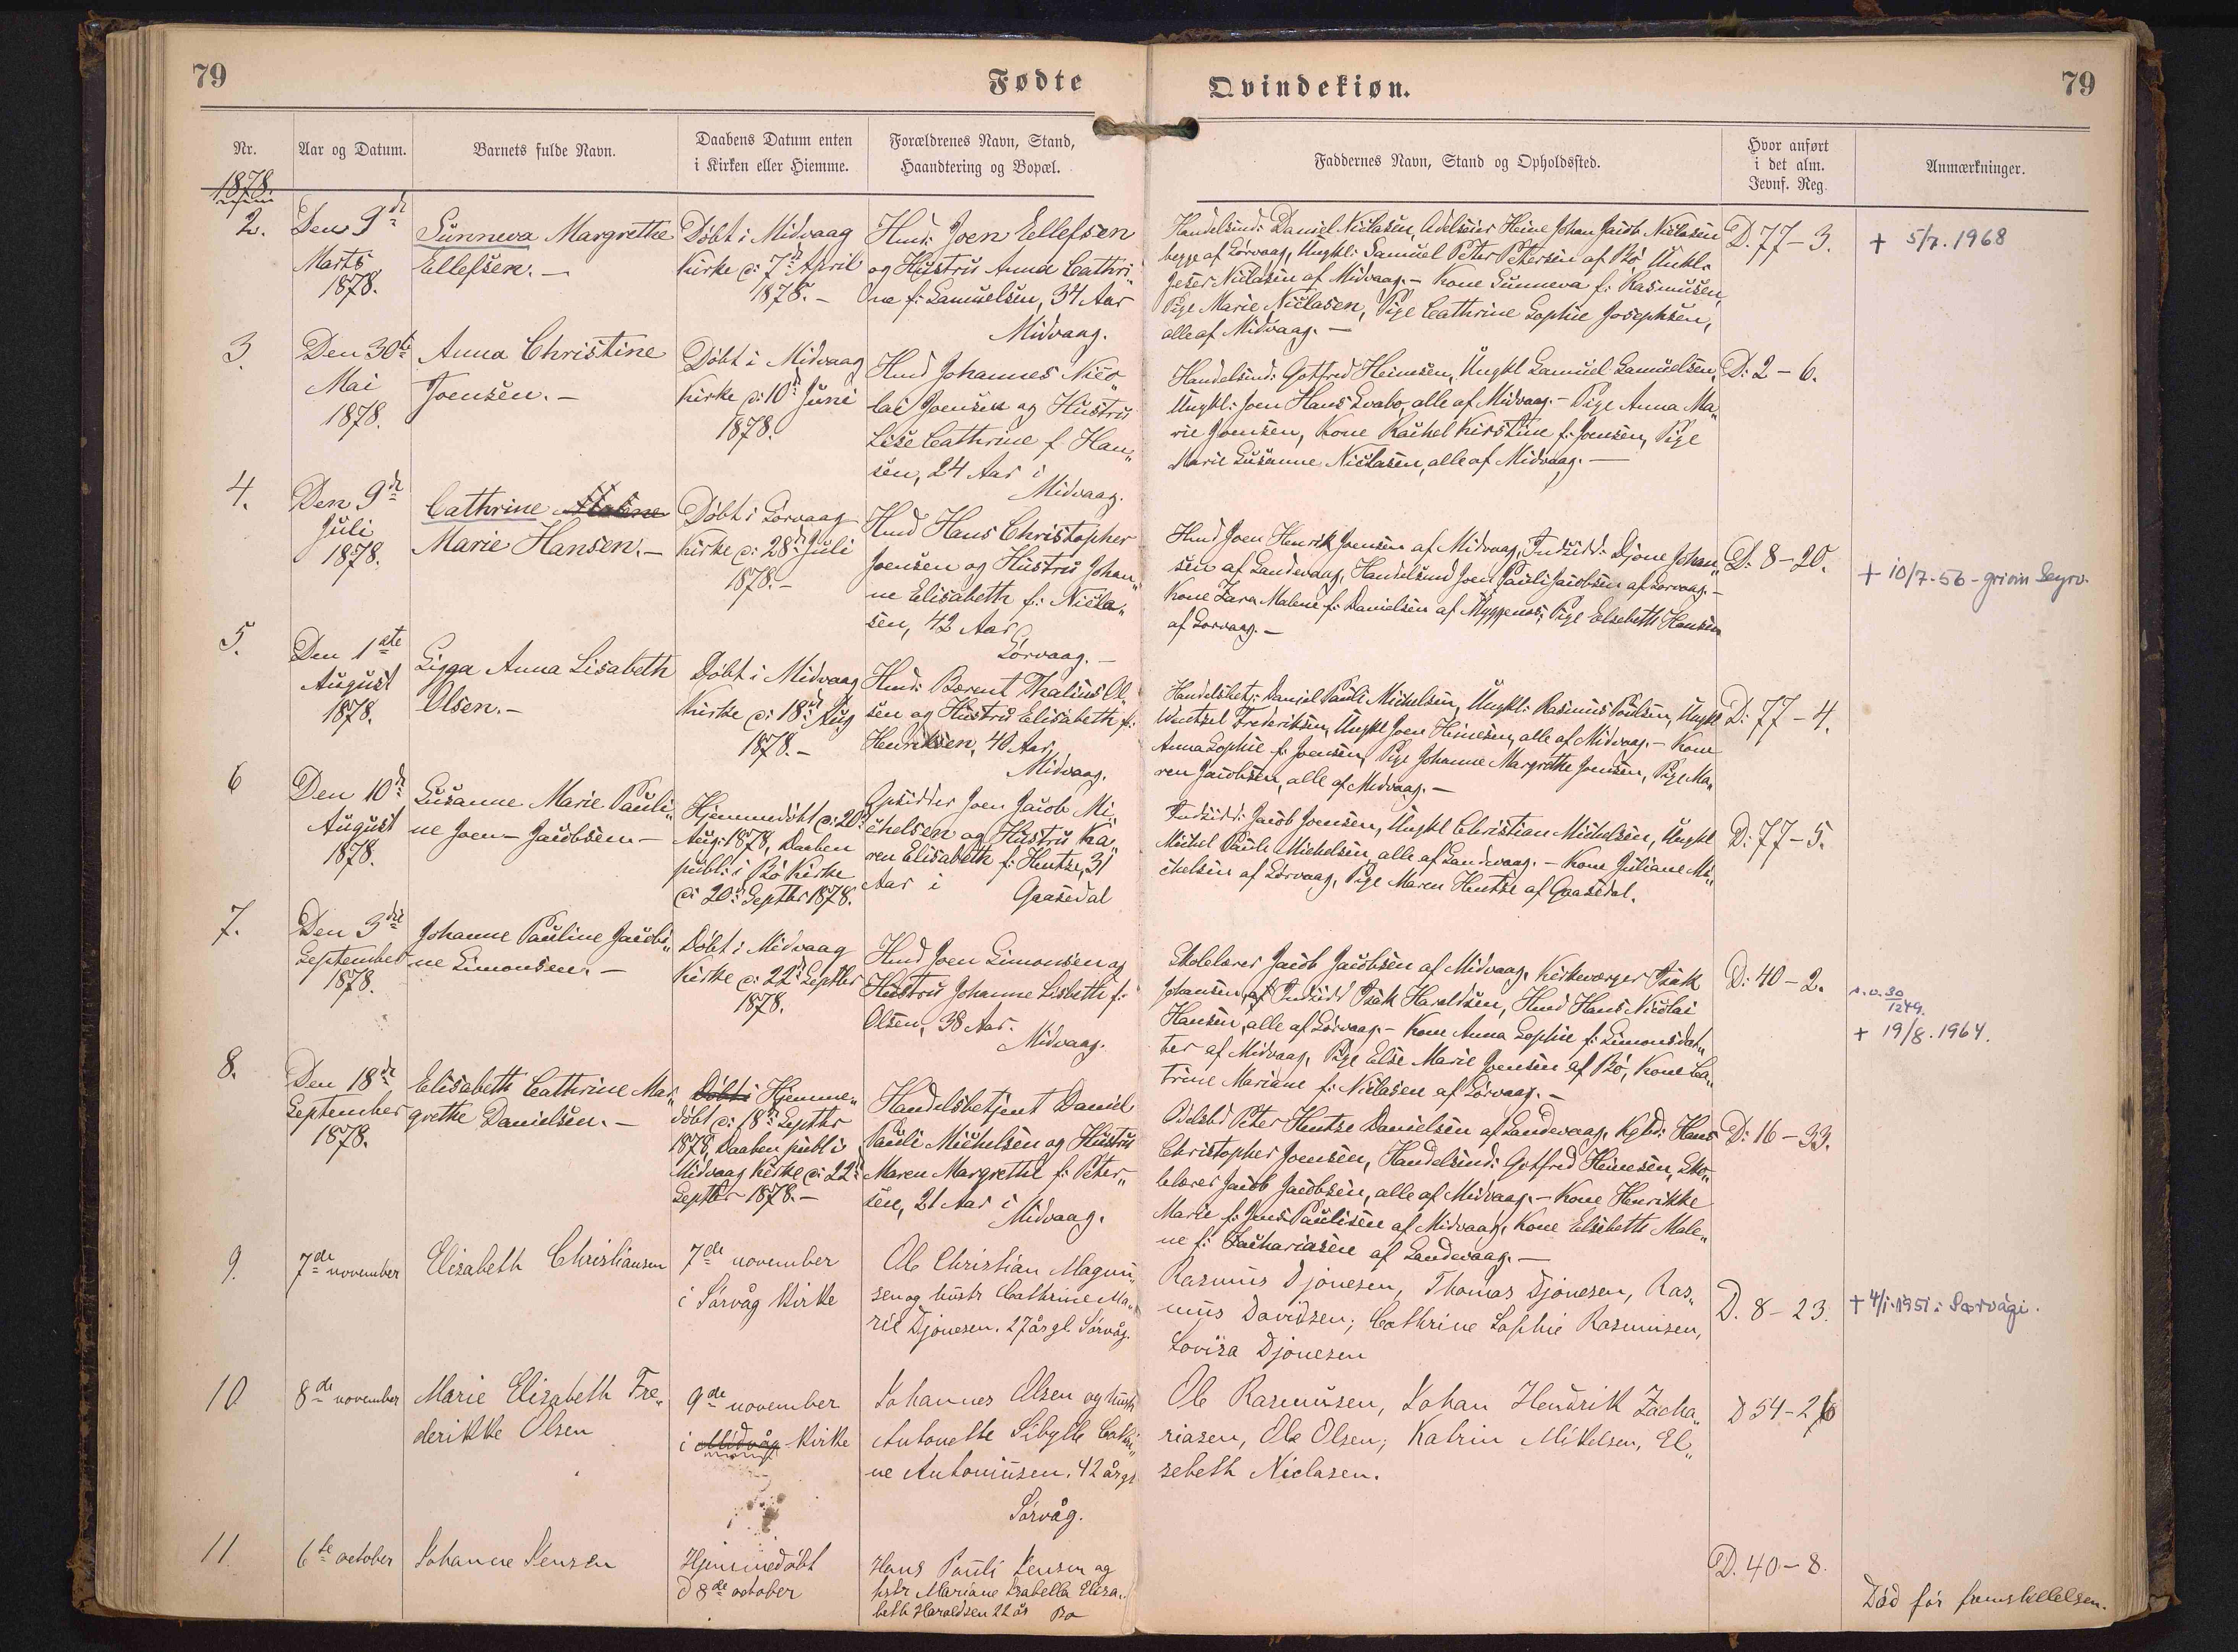 79
Fødte
Qvindekiøn.
79
Nr.
Aar og Datum.
Barnets fulde Navn.
Daabens Datum enten
i Kirken eller Hiemme.
Forældrenes Navn, Stand,
Haandtering og Bopæl.
Faddernes Navn, Stand og Opholdssted.
Hvor anført
i det alm.
Jevnf. Reg.
Anmærkninger.
1878.
2.
Den 9de
Marts
1878.
Sunneva Margrethe
Ellefsen.-
Döbt i Midvaag
Kirke d: 7de April
1878.-
Hmd: Joen Ellefsen
og Hustru Anna Cathri„
ne f: Samuelsen, 34 Aar
Midvaag.
Handelsmd: Daniel Niclasen, Odelsbd Heine Johan Jacob Niclasen
begge af Sörvaag, Ungkl: Samuel Peter Petersen af Bö Unkl.
Jeser Niclasen af Midvaag.- Kone Sunneva f: Rasmusen,
Pige Marie Niclasen, Pige Cathrine Sophie Josephsen,
alle af Midvaag.-
D. 77-3.
+ 5/7. 1968
3.
Den 30te
Mai
1878.
Anna Christine
Joensen.-
Döbt i Midvaag
Kirke d: 10d Juni
1878.
Hmd Johannes Nico„
lai Joensen og Hustru
Lise Cathrine f Han„
sen, 24 Aar i
Midvaag.
Handelsmd: Gotfred Heinesen, Ungkl Samuel Samuelsen,
Ungkl: Joen Hans Svabo, alle af Midvaag.- Pige Anna Ma„
rie Joensen, Kone Rachel Kirstine f: Joensen, Pige
Marie Susanne Niclasen, alle af Midvaag.-
D: 2-6.
4.
Den 9de
Juli
1878.
Cathrine Malene
Marie Hansen.-
Döbt i Sörvaag
Kirke d: 28d Juli
1878.-
Hmd Hans Christopher
Joensen og Hustru Johan„
ne Elisabeth f: Nicla„
sen, 42 Aar
Sörvaag.-
Hmd Joen Henrik Joensen af Midvaag, Indsidd: Djone Johan„
sen af Sandevaag, Handelsmd Joen Pauli Jacobsen af Sorvaag.-
Kone Zara Malene f: Danielsen af Myggenæs, Pige Elsebeth Hansen
af Sorvaag.-
D: 8-20.
+ 10/7-56-
5.
Den 1ste
August
1878.
Sigga Anna Lisabeth
Olsen.-
Döbt i Midvaag
Kirke d: 18de Aug
1878.-
Hmd: Berent Thalius Ol„
sen og Hustru Elisabeth f:
Henriksen, 40 Aar,
Midvaag.
Handelsbetj: Daniel Pauli Michelsen, Ungkl: Rasmus Poulsen, Ungkl
Wentzel Frederiksen, Ungkl Joen Heinesen, alle af Midvaag.- Kone
Anna Sophie f: Joensen, Pige Johanne Margrethe Joensen, Pige Ma„
ren Jacobsen, alle af Midvaag.-
D: 77-4.
6
Den 10de
August
1878.
Susanne Marie Pauli„
ne Joen-Jacobsen-
Hjemmedöbt d: 20d
Aug: 1878, Daaben
publ: i Bö Kirke
d: 20d Septbr 1878.
Opsidder Joen Jacob Mi„
chelsen og Hustru Ka„
ren Elisabeth f: Hentze, 31
Aar i Gaasedal
Indsidd: Jacob Joensen, Ungkl Christian Michelsen, Ungkl
Michel Pauli Michelsen, alle af Sandevaag.- Kone Juliane Mi„
chelsen af Sörvaag, Pige Maren Hentze af Gaasedal.
D: 77-5.
7.
Den 3die
September
1878.
Johanne Pauline Jacobi„
ne Simonsen.-
Döbt i Midvaag
Kirke d: 22d Septbr
1878.
Hmd Joen Simonsen og
Hustru Johanne Lisbeth f:
Olsen, 38 Aar.
Midvaag.
Skolelærer Jacob Jacobsen af Midvaag, Kirkeværger Isak
Johansen, Indsidd Isak Haraldsen, Hmd Hans Nicolai
Hansen, alle af Sörvaag.- Kone Anna Sophie f: Simonsdat„
ter af Midvaag, Pige Else Marie Joensen af Bö, Kone Ca„
trine Mariane f: Niclasen af Sörvaag.-
D: 40-2.
+ 19/8. 1964.
8.
Den 18de
September
1878.
Elisabeth Cathrine Mar„
grethe Danielsen.-
Döbt i Hjemme„
döbt d: 18de Septbr
1878, Daaben publ i
Midvaag Kirke d: 22d
Septbr 1878.-
Handelsbetjent Daniel
Pauli Michelsen og Hustru
Maren Margrethe f: Peter„
sen, 21 Aar i
Midvaag.
Odelsbd Peter Hentze Danielsen af Sandevaag, Kgbd: Hans
Christopher Joensen, Handelsmd: Gotfred Heinesen, Sko„
lelærer Jacob Jacobsen, alle af Midvaag.- Kone Henrikke
Marie f: Jens Paulisen af Midvaag, Kone Elsebeth Male„
ne f: Zachariasen af Sandevaag.-
D: 16-33.
9.
7de november
Elisabeth Christiansen
7de november
i Sörvåg Kirke
Ole Christian Magnu„
sen og hustr Cathrine Ma„
rie Djonesen. 27 år gl. Sörvåg.
Rasmus Djonesen, Thomas Djonesen, Ras„
mus Davidsen; Cathrine Sophie Rasmusen,
Lovisa Djonesen
D. 8-23.
+ 4/1-1951 i Sørvági.
10
8de november
Marie Elisabeth Fre„
derikke Olsen
9de november
i Midvåg Kirke
Johannes Olsen og hustr
Antonette Sibylle Cathri„
ne Antoniusen. 42 år gl
Sörvåg.
Ole Rasmusen, Johan Hendrik Zacha„
riasen, Ole Olsen; Katrin Mikelsen, El„
sebeth Niclasen.
D 54-26
11
6te october
Johanne Jensen
Hjemmedöbt
d 8de october
Hans Pauli Jensen og
hstr Mariane Isabella Elisa„
beth Haraldsen 22 år Bø
D. 40-8.
Död för fremstillelsen.